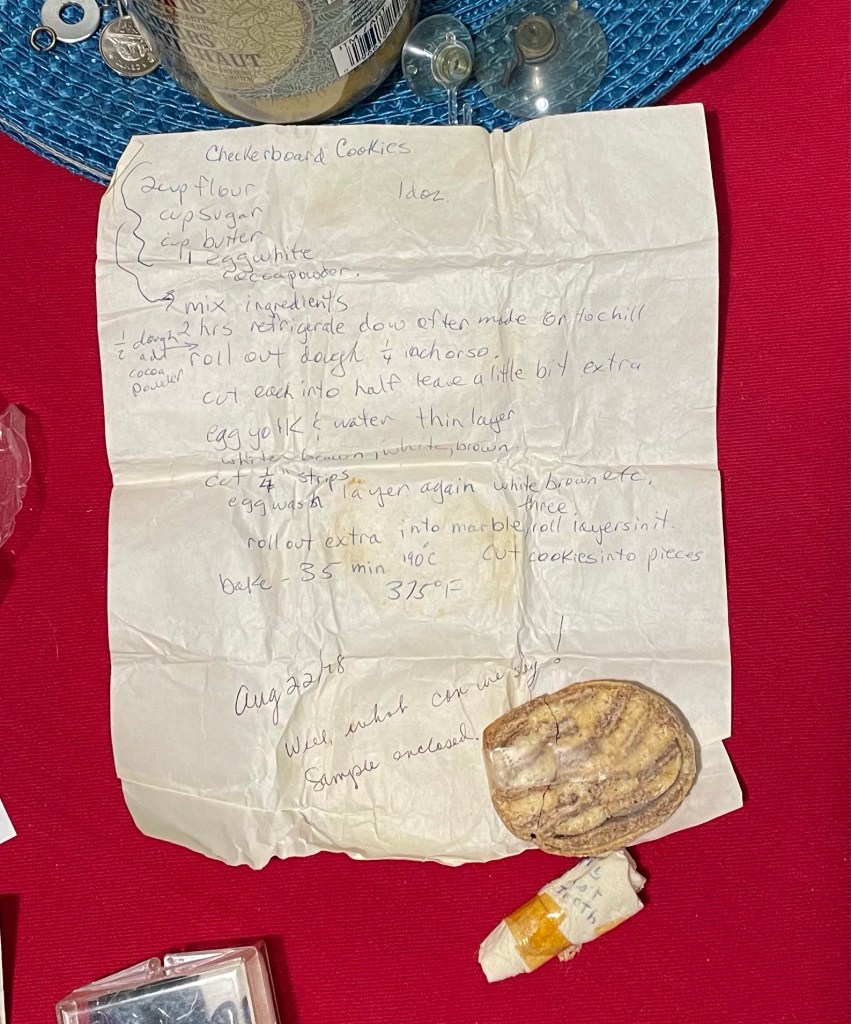 HAUT
Checkerboard Cookies
2cup flour 1doz
cup sugar
cup butter
1 eggwhite
cocoapowder.
mix ingredients
2 hrs refrigerate dow after made to chill
1/2 dough add cocoa powder → roll out dough 1/4 inch or so.
cut each into half leave a little bit extra
egg yolk & water thin layer
white, brown, white, brown.
cut 1/4" strips
egg wash layer again white brown etc.
three.
roll out extra into marble, roll layers in it.
bake - 35 min 190°C cut cookies into pieces
375°F
Aug 22/78
Well, what can we say!
Sample enclosed.
TOOTH